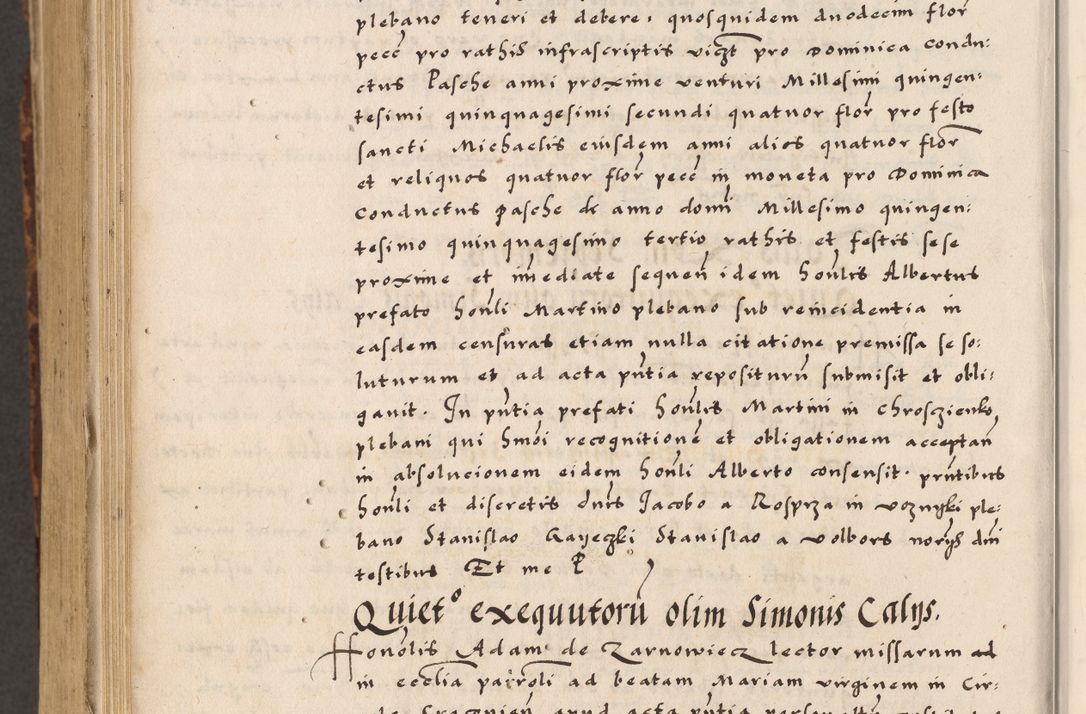 plebano teneri et debere, quosquidem duodecim flor̃
pecc̃ pro rathis infrascriptis vicz̃t pro Dominica Condu:
ctus Pasche anni proxime venturi Millesimi quingen:
tesimi quinquagesimi secundi quatuor flor̃ pro festo
sancti Michaelis eiusdem anni alios quatuor flor̃
et reliquos quatuor flor̃ pecc̃ in moneta pro Dominica
Conductus Pasche de anno domĩ Millesimo quingen:
tesimo quinquagesimo tertio rathis et festis sese
proxime et im̃ediate sequeñ idem Hon̄lis Albertus
prefato Hon̄li Martino plebano sub reincidentia in
easdem censuras etiam nulla citatione premissa se so:
luturum et ad acta pn̄tia repositurū submisit et obli:
gauit. In pn̄tia prefati Hon̄lis Martini in Chrosczienko
plebani qui Hm̄oi recognitionē et obligationem acceptañ
in absolucionem eidem Hon̄li Alberto consensit. prn̄tibus
Hon̄li et discretis dn̄is Jacobo a Rosprza in vozniki ple:
bano Stanislao Gayeczki Stanislao a Volbors norijs dn̄i
testibus Et me P
Quiet° exequutorū olim Simonis Calijs.
Honōlis Adam de Zarnowiecz lector missarum ad
in eccl̄ia parrōli ad beatam Mariam virginem in Cir: